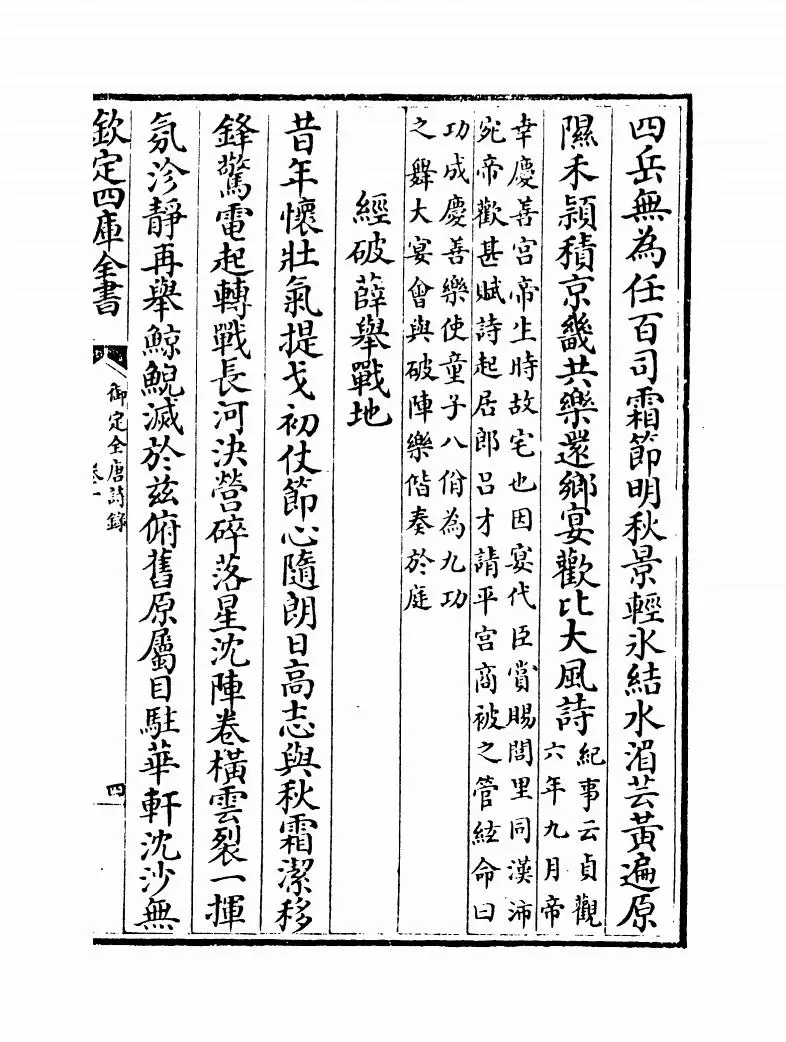 四岳無為任百司霜節明秋景輕氷結水湄芸黃遍原
隰禾穎積京畿共樂還鄉宴歡比大風詩
紀事云貞觀
六年九月帝
幸慶善宮帝生時故宅也因宴代臣賞賜閭里同漢沛
宛帝歡甚賦詩起居郎呂才請平宮商被之管絃命曰
功成慶善樂使童子八佾為九功
之舞大宴會與破陣樂偕奏於庭
經破薛舉戰地
昔年懷壯氣提戈初仗節心隨朗日高志與秋霜潔移
鋒驚電起轉戰長河決營碎落星沈陣卷橫雲裂一揮
氛沴靜再舉鯨鯢滅於兹俯舊原屬目駐華軒沈沙無
欽定四庫全書
御定全唐詩錄
卷一
四